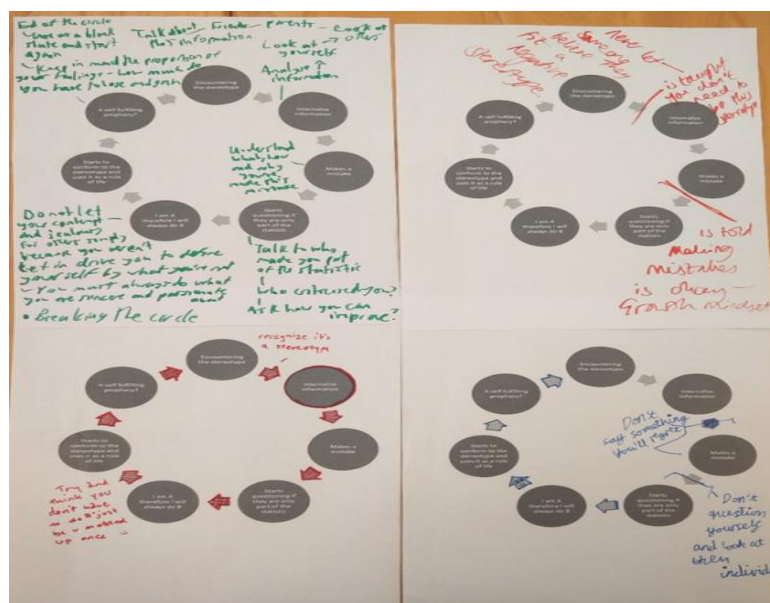 End of the circle
- Use as a blank
slate and start
again
- Keep in mind the proportion of
your feelings - how much do
you have to lose and gain
Talk about - Friends - parents - Look at
this information
Look at → others
yourself
Analyse
information
Encountering
the stereotype
Internalise
information
Makes a
mistake
Starts
questioning if
they are only
part of the
statistic
I am A
therefore I will
always do B
Starts to
conform to the
stereotype and
uses it as a rule
of life
A self fulfilling
prophecy?
Understand
what, how
and why
you've
made this
mistake
Do not let
your contempt
and jealousy
for others simply
because you weren't
let in drive you to define
yourself by what you're not
- You must always do what
you are sincere and passionate
about
• Breaking the circle
Talk to who
made you part
of the statistic
Who criticised you?
Ask how you can
improve?
Never let
someone
believe they
fit a
negative
stereotype
is taught
you don't
need to
be this
stereotype
Encountering
the stereotype
Internalise
information
Makes a
mistake
Starts
questioning if
they are only
part of the
statistic
I am A
therefore I will
always do B
Starts to
conform to the
stereotype and
uses it as a rule
of life
A self fulfilling
prophecy?
is told
Making
mistakes
is okay -
Growth mindset
recognize its
a stereotype
Encountering
the stereotype
Internalise
information
Makes a
mistake
Starts
questioning if
they are only
part of the
statistic
I am A
therefore I will
always do B
Starts to
conform to the
stereotype and
uses it as a rule
of life
A self fulfilling
prophecy?
Try and
think you
don't have
to do B just
be u messed
up once
Encountering
the stereotype
Internalise
information
Makes a
mistake
Starts
questioning if
they are only
part of the
statistic
I am A
therefore I will
always do B
Starts to
conform to the
stereotype and
uses it as a rule
of life
A self fulfilling
prophecy?
Don't
say something
you'll regret
Don't
question
yourself
and look at
then
individ